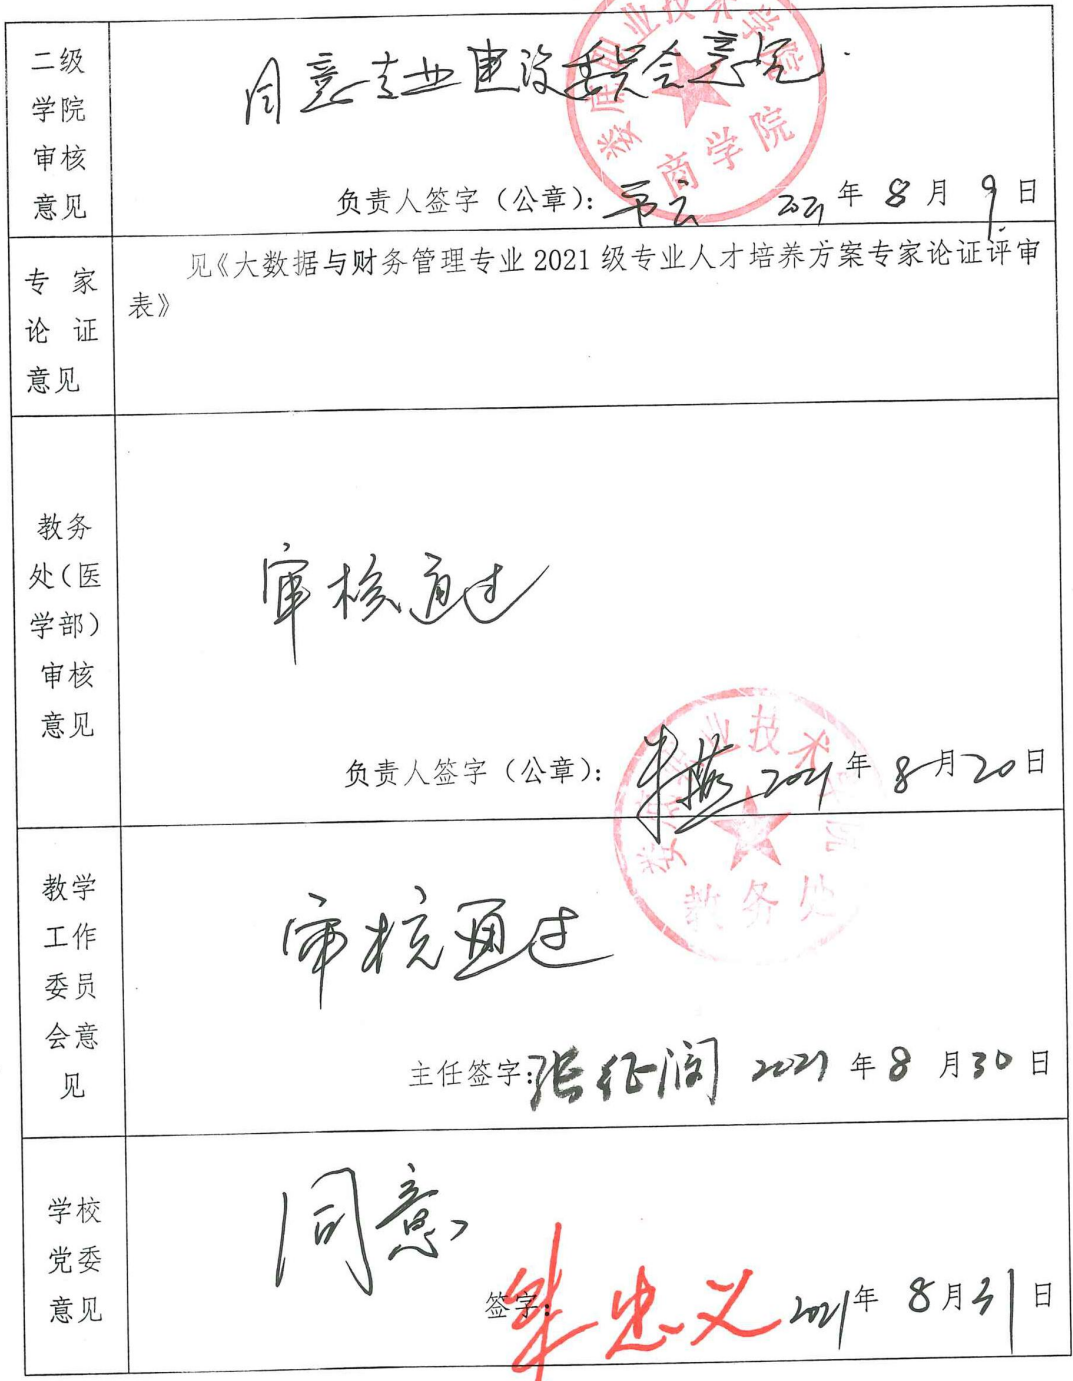 二级
学院
审核
意见
同意专业建设委员会意见.
娄底职业技术学院
商学院
负责人签字（公章）： 2021年 8月 9日
专 家
论 证
意见
见《大数据与财务管理专业 2021 级专业人才培养方案专家论证评审
表》
教务
处（医
学部）
审核
意见
审核通过
负责人签字（公章）： 2021年 8月20日
娄底职业技术学院
教务处
教学
工作
委员
会意
见
审核通过
主任签字：张征润 2021年 8月30日
学校
党委
意见
同意
签字： 忠义 2021年 8月31日